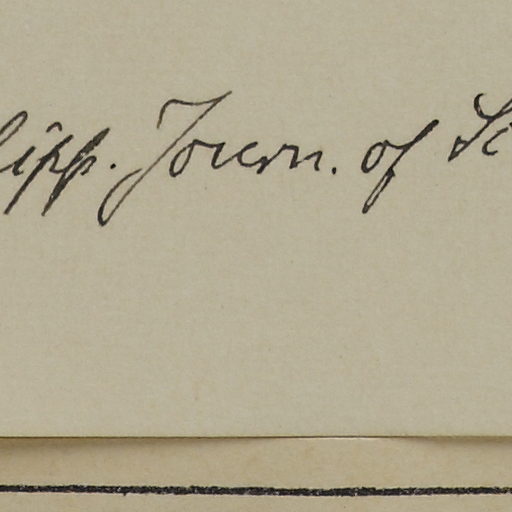 lipp. Journ. of Sc